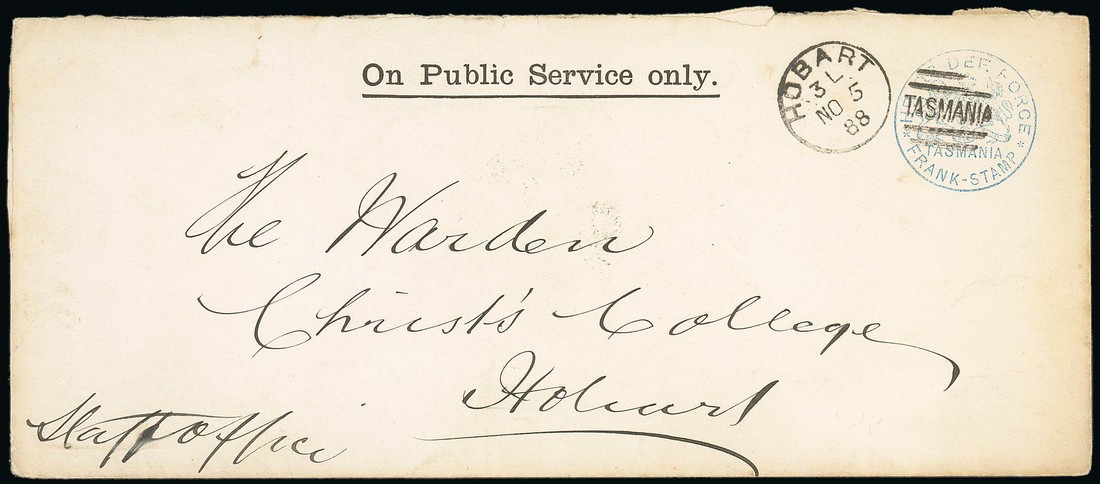 On Public Service only.
HOBART
3L
NO 5
88
DEF. FORCE
TASMANIA
TASMANIA
* FRANK-STAMP *
The Warden
Christ's College
Hobart
Staff Office